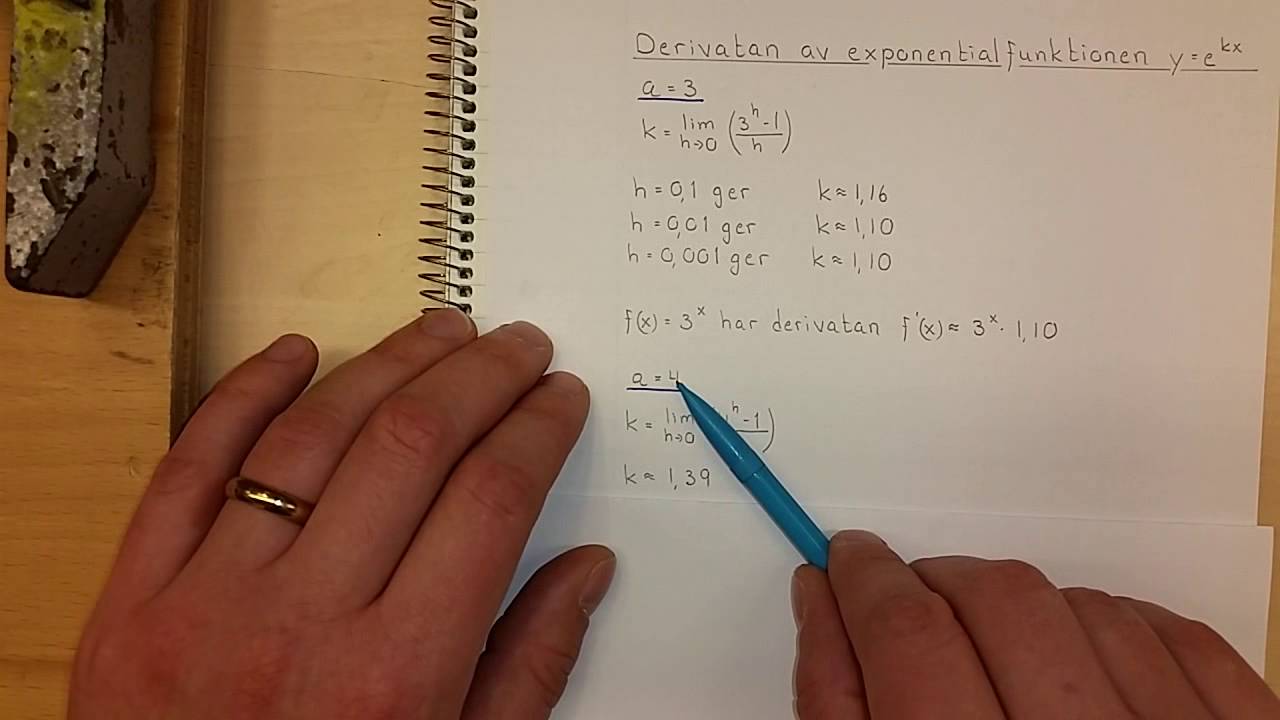 Derivatan av exponentialfunktionen y = e^kx
a = 3
k = lim h→0 (3^h - 1 / h)
h = 0,1 ger k ≈ 1,16
h = 0,01 ger k ≈ 1,10
h = 0,001 ger k ≈ 1,10
f(x) = 3^x har derivatan f'(x) ≈ 3^x · 1,10
a = 4
k = lim h→0 ^h - 1 )
k ≈ 1,39